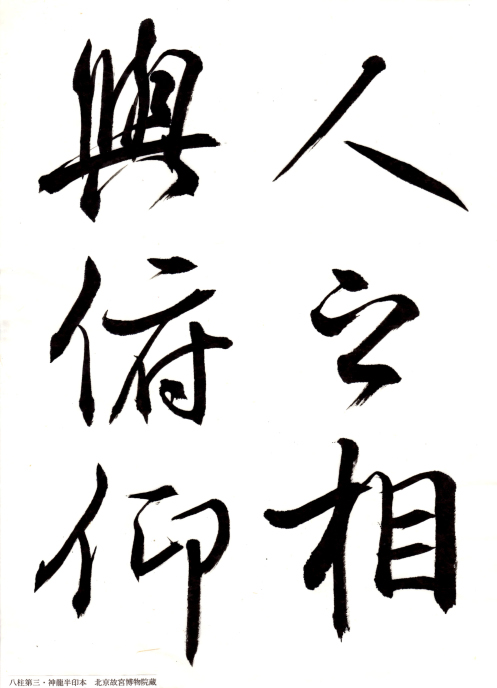 人之相
與俯仰
八柱第三・神龍半印本　北京故宮博物院蔵